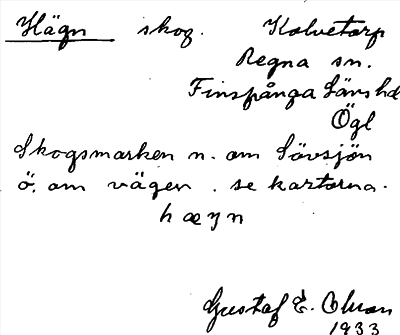 Hägn skog. Kalvetorp
Regna sn.
Finspånga Läns hd
Ögl
Skogsmarken n. om Lövsjön
ö. om vägen . se kartorna.
hægn
Gustaf E. Olson
1933